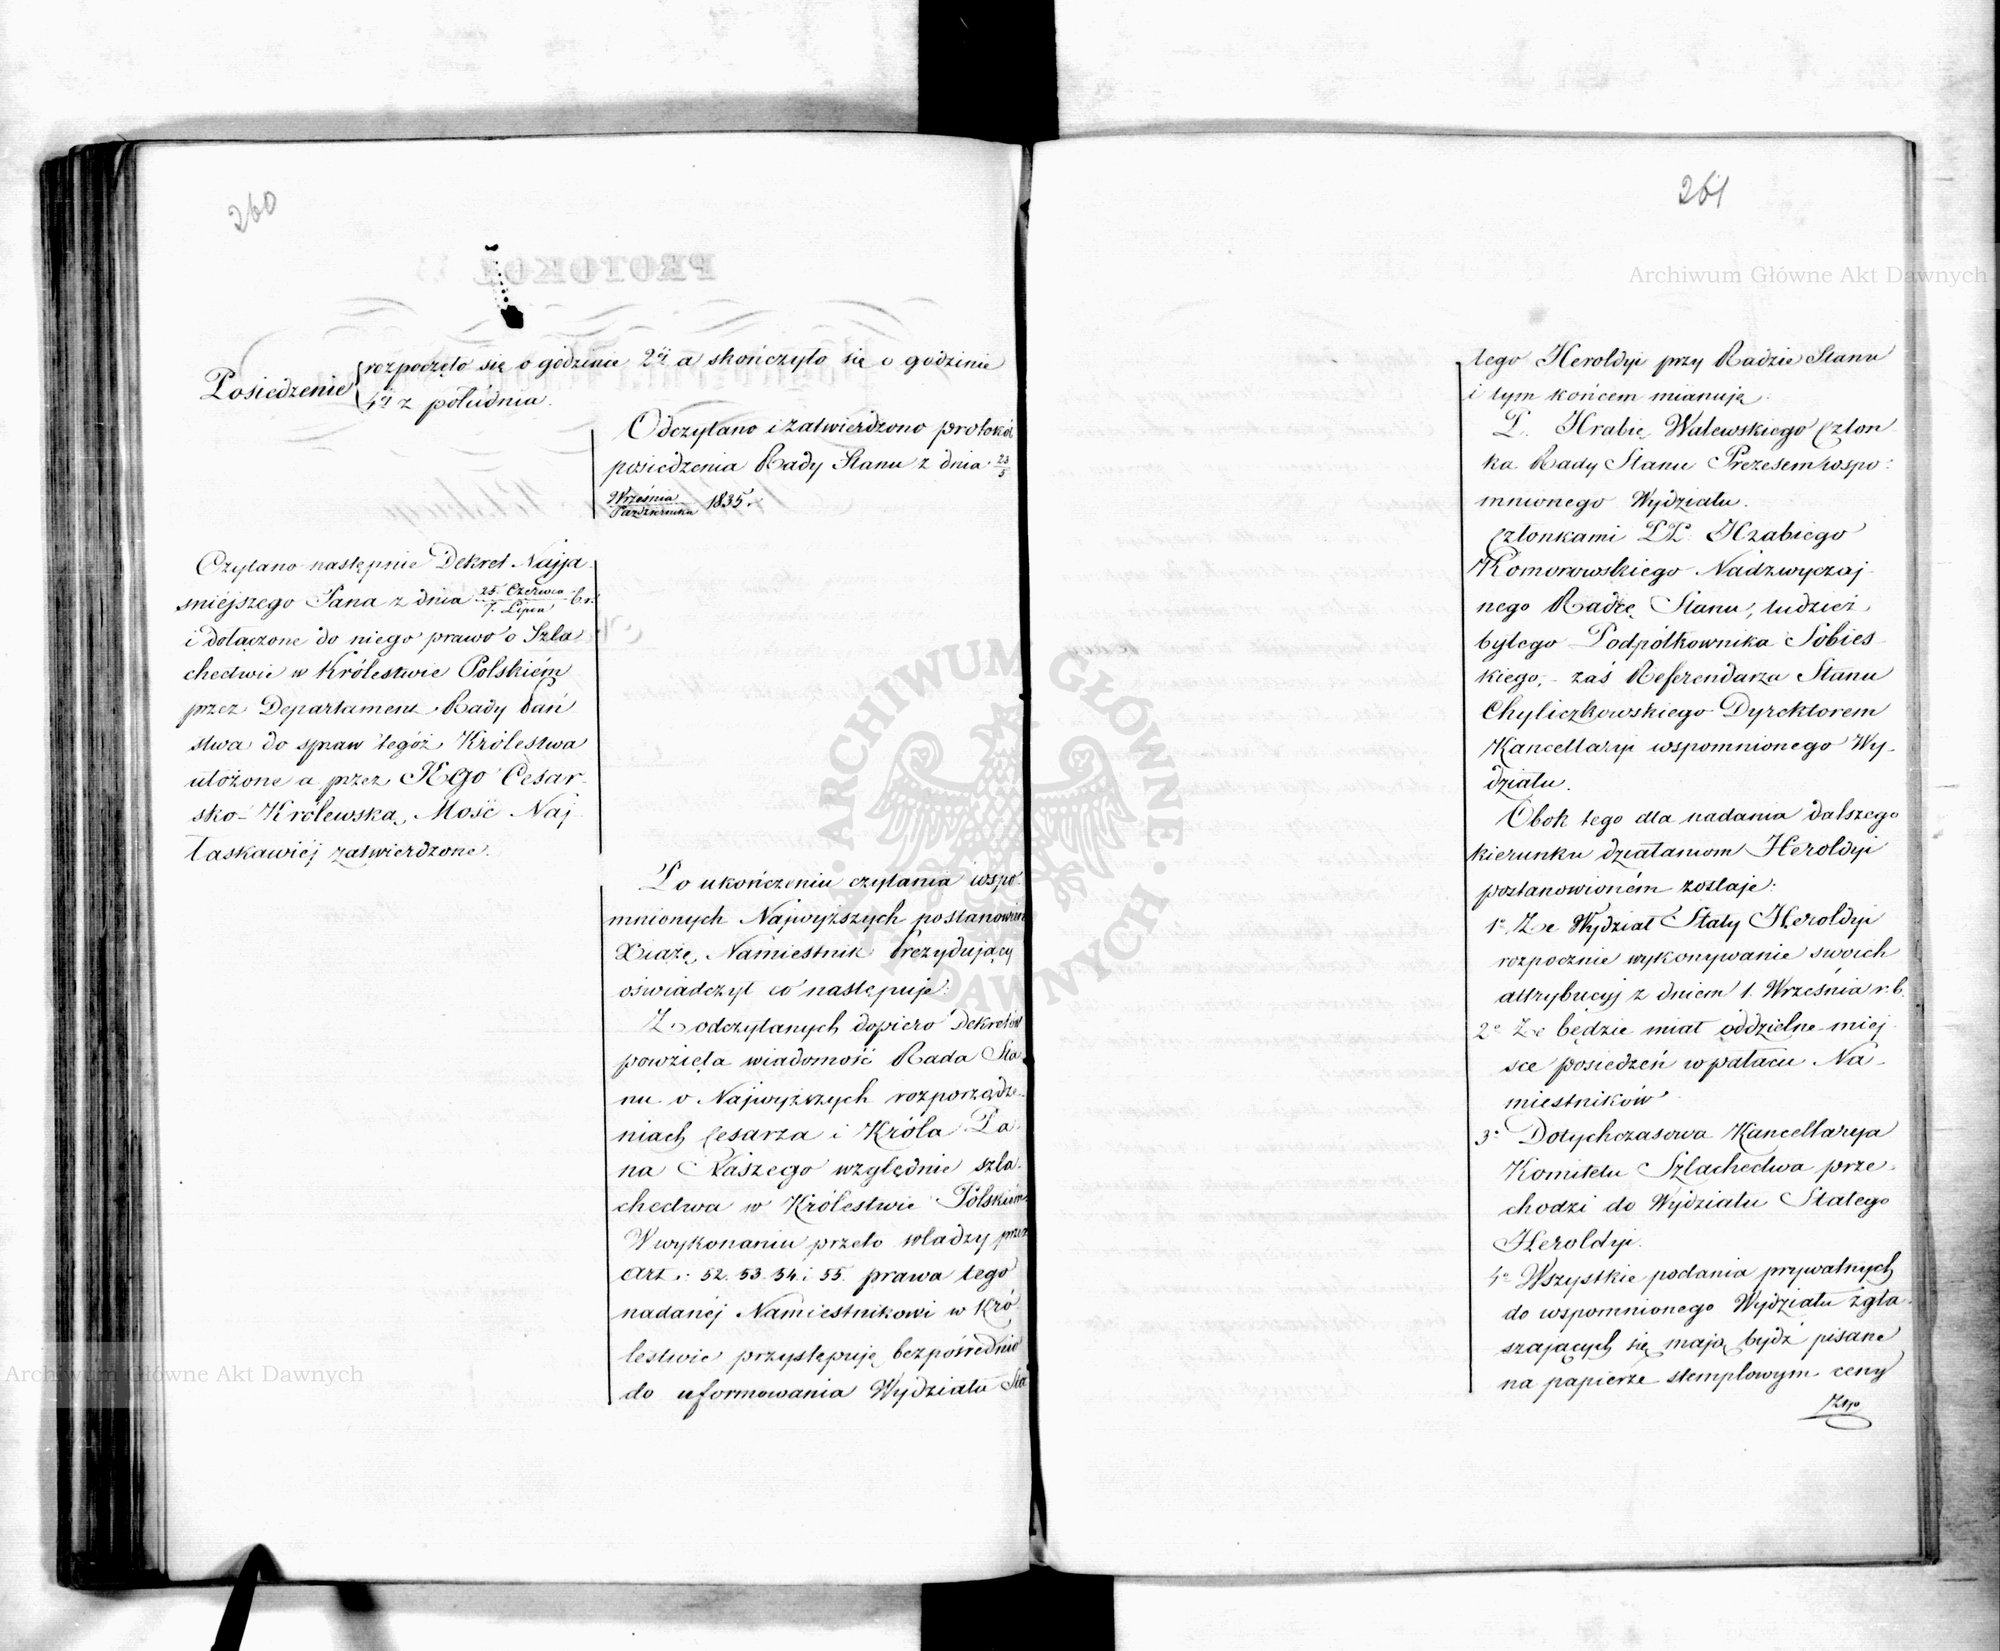 260
Posiedzenie rozpoczęło się o godzinie 2éj a skończyło się o godzinie
4éj z południa.
Odczytano i zatwierdzono protokół
posiedzenia Rady Stanu z dnia 23/5
Września/Października 1835.
Czytano następnie Dekret Najja-
śniejszego Pana z dnia 25. Czerwca/7. Lipca b.r.
i dołączone do niego prawo o Szla-
chectwie w Królestwie Polskiém
przez Departament Rady Pań
stwa do spraw tegoż Królestwa
ułożone a przez JEGo Cesar-
sko-Królewską Mość Naj-
łaskawiéj zatwierdzone.
Po ukończeniu czytania wspo-
mnionych Najwyższych postanowień
Xiążę Namiestnik Prezydujący
oświadczył co następuje:
Z odczytanych dopiero Dekretów
powzięła wiadomość Rada Sta-
nu o Najwyższych rozporządze-
niach Cesarza i Króla Pa-
na Naszego względnie szla-
chectwa w Królestwie Polskiém.
W wykonaniu przeto władzy przez
Art.: 52. 53. 54. i 55. prawa tego
nadanéj Namiestnikowi w Kró-
lestwie przystępuję bezpośrednio
do uformowania Wydziału Sta
261
łego Heroldyi przy Radzie Stanu
i tym końcem mianuję:
P. Hrabię Walewskiego Człon-
ka Rady Stanu Prezesem wspo-
mnionego Wydziału.
Członkami PP. Hrabiego
Komorowskiego Nadzwyczaj-
nego Radcę Stanu, tudzież
byłego Podpółkownika Sobies-
kiego, zaś Referendarza Stanu
Chyliczkowskiego Dyrektorem
Kancellaryi wspomnionego Wy-
działu.
Obok tego dla nadania dalszego
kierunku działaniom Heroldyi
postanowioném zostaje:
1o. Że Wydział Stały Heroldyi
rozpocznie wykonywanie swoich
attrybucyj z dniem 1. Września r.b.
2o Że będzie miał oddzielne miej-
sce posiedzeń w pałacu Na-
miestników
3o Dotychczasowa Kancellarya
Komitetu Szlachectwa prze-
chodzi do Wydziału Stałego
Heroldyi.
4o Wszystkie podania prywatnych
do wspomnionego Wydziału zgła-
szających się mają bydź pisane
na papierze stemplowym ceny
Archiwum Główne Akt Dawnych
Archiwum Główne Akt Dawnych
ARCHIWUM GŁÓWNE AKT DAWNYCH